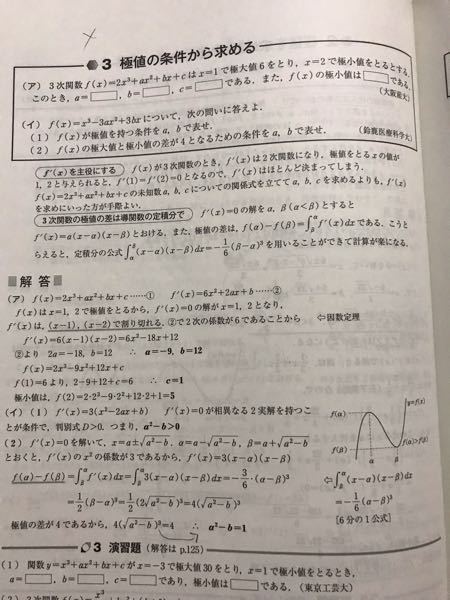 3 極値の条件から求める
(ア) 3次関数 f(x)=2x³+ax²+bx+c は x=1 で極大値6をとり, x=2 で極小値をとるとする.
このとき, a=□, b=□, c=□ である. また, f(x) の極小値は□である.
(大阪産大)
(イ) f(x)=x³-3ax²+3bx について, 次の問いに答えよ.
(1) f(x) が極値を持つ条件を a, b で表せ.
(2) f(x) の極大値と極小値の差が4となるための条件を a, b で表せ.
(鈴鹿医療科学大)
f'(x) を主役にする f(x) が3次関数のとき, f'(x) は2次関数になり, 極値をとる x の値が
1, 2 と与えられると, f'(1)=f'(2)=0 となるので, f'(x) はほとんど決まってしまう.
f(x)=2x³+ax²+bx+c の未知数 a, b, c についての関係式を立てて a, b, c を求めるよりも, f'(x)
を求めにいった方が手際よい.
3次関数の極値の差は導関数の定積分で f'(x)=0 の解を α, β(α<β) とすると
f'(x)=a(x-α)(x-β) とおける. また, 極値の差は, f(α)-f(β)=∫_β^α f'(x)dx である. こうと
らえると, 定積分の公式 ∫_α^β (x-α)(x-β)dx=-1/6(β-α)³ を用いることができて計算が楽になる.
解答
(ア) f(x)=2x³+ax²+bx+c ……① f'(x)=6x²+2ax+b ……②
f(x) は x=1, 2 で極値をとるから, f'(x)=0 の解が x=1, 2 となり,
f'(x) は, (x-1), (x-2) で割り切れる. ②で2次の係数が6であることから ⇦因数定理
f'(x)=6(x-1)(x-2)=6x²-18x+12
②より 2a=-18, b=12 ∴ a=-9, b=12
f(x)=2x³-9x²+12x+c
f(1)=6 より, 2-9+12+c=6 ∴ c=1
極小値は, f(2)=2·2³-9·2²+12·2+1=5
(イ) (1) f'(x)=3(x²-2ax+b) f'(x)=0 が相異なる2実解を持つこ
とが条件で, 判別式 D>0. つまり, a²-b>0
(2) f'(x)=0 を解いて, x=a±√(a²-b) α=a-√(a²-b), β=a+√(a²-b)
とおくと, f'(x) の x² の係数が3であるから, f'(x)=3(x-α)(x-β)
f(α)-f(β)=∫_β^α f'(x)dx=∫_β^α 3(x-α)(x-β)dx=-3/6·(α-β)³
=1/2(β-α)³=1/2(2√(a²-b))³=4(√(a²-b))³
極値の差が4であるから, 4(√(a²-b))³=4 ∴ a²-b=1
y=f(x)
f(α)
f(β)
α β
⇦∫_β^α (x-α)(x-β)dx
=-1/6(α-β)³
[6分の1公式]
3 演習題 (解答は p.125)
(1) 関数 y=x³+ax²+bx+c が x=-3 で極大値30をとり, x=1 で極小値をとるとき,
a=□, b=□, c=□ であり, 極小値は□である. (東京工芸大)